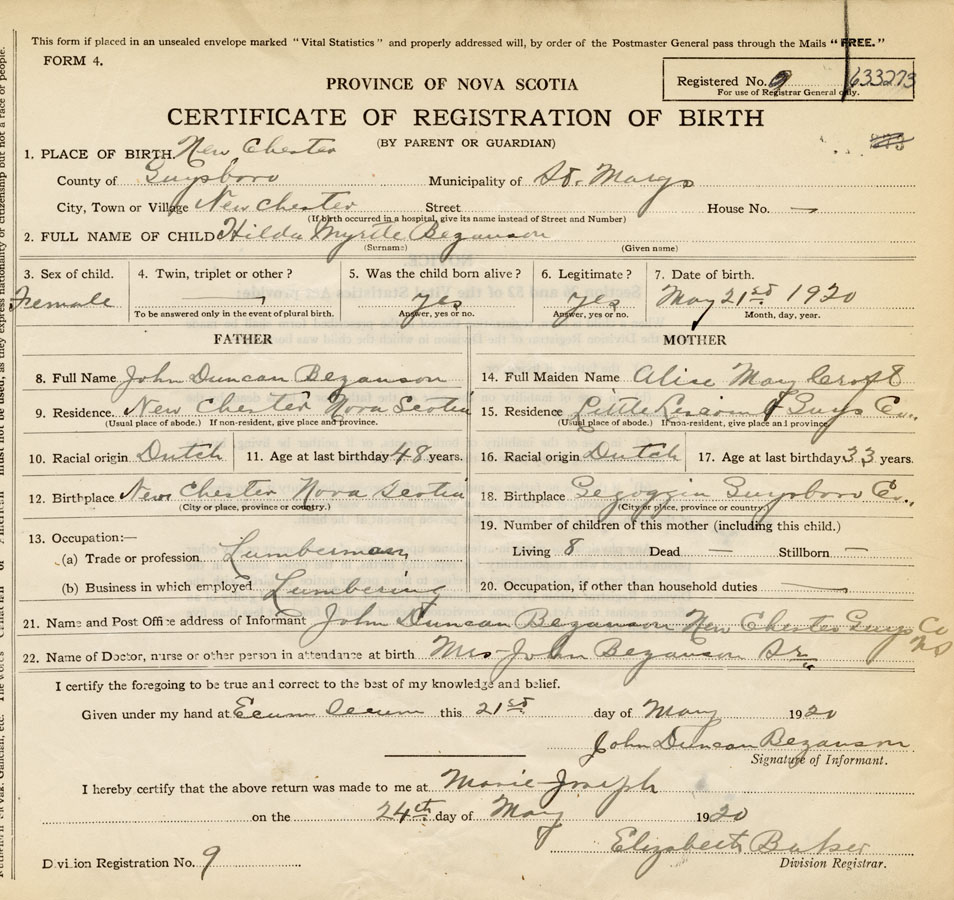 This form if placed in an unsealed envelope marked "Vital Statistics" and properly addressed will, by order of the Postmaster General pass through the Mails "FREE."
FORM 4.
Registered No. 9 633273
For use of Registrar General only.
PROVINCE OF NOVA SCOTIA
CERTIFICATE OF REGISTRATION OF BIRTH
(BY PARENT OR GUARDIAN)
1. PLACE OF BIRTH. New Chester
County of Guysboro Municipality of St. Marys
City, Town or Village New Chester Street House No. —
(If birth occurred in a hospital, give its name instead of Street and Number)
2. FULL NAME OF CHILD Hilda Myrtle Bezanson
(Surname) (Given name)
3. Sex of child. 4. Twin, triplet or other? 5. Was the child born alive? 6. Legitimate? 7. Date of birth.
Female — yes yes May 21st 1920
To be answered only in the event of plural birth. Answer, yes or no. Answer, yes or no. Month, day, year.
FATHER MOTHER
8. Full Name John Duncan Bezanson
9. Residence. New Chester Nova Scotia
(Usual place of abode.) If non-resident, give place and province.
10. Racial origin Dutch 11. Age at last birthday 48 years.
12. Birthplace New Chester Nova Scotia
(City or place, province or country.)
13. Occupation:—
(a) Trade or profession Lumberman
(b) Business in which employed Lumbering
14. Full Maiden Name Alise May Croft
15. Residence Little Liscomb Guys Co.
(Usual place of abode.) If non-resident, give place and province.
16. Racial origin Dutch 17. Age at last birthday 33 years.
18. Birthplace Gegoggin Guysboro Co.
(City or place, province or country.)
19. Number of children of this mother (including this child.)
Living 8 Dead — Stillborn —
20. Occupation, if other than household duties —
21. Name and Post Office address of Informant John Duncan Bezanson New Chester Guys Co
NS
22. Name of Doctor, nurse or other person in attendance at birth. Mrs John Bezanson Sr.
I certify the foregoing to be true and correct to the best of my knowledge and belief.
Given under my hand at Ecum Secum this 21st day of May 1920
John Duncan Bezanson
Signature of Informant.
I hereby certify that the above return was made to me at Marie Joseph
on the 24th day of May 1920
Elizabeth Baker
Division Registrar.
Division Registration No. 9